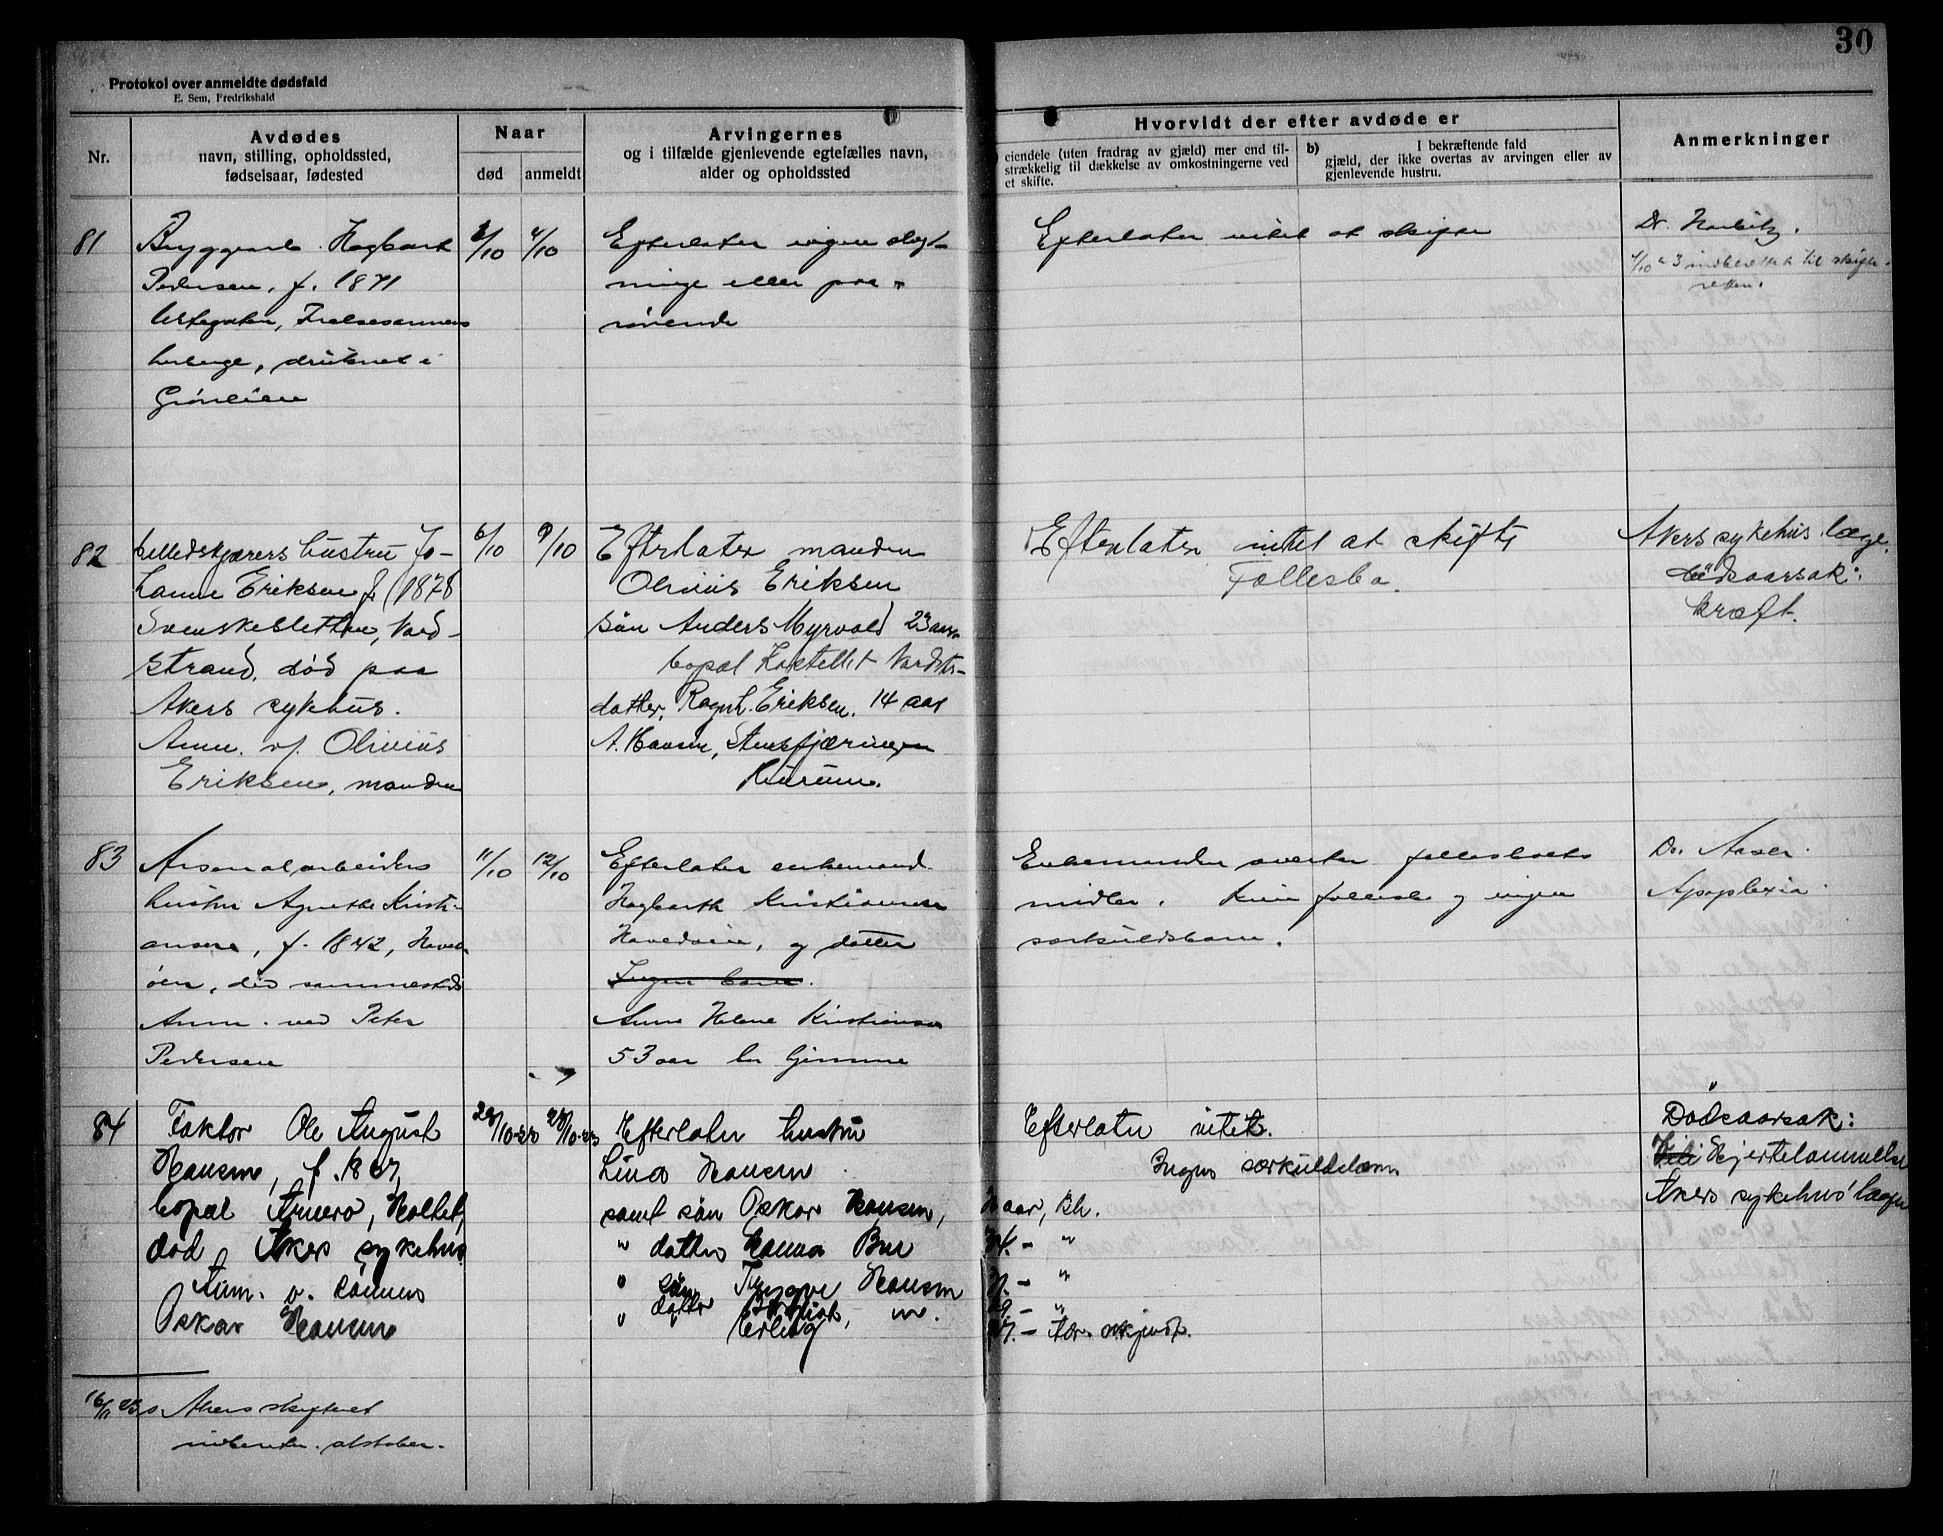 30
Protokol over anmeldte dødsfald
E. Sem, Fredrikshald
Nr.
Avdødes
navn, stilling, opholdssted,
fødselsaar, fødested
Naar
død
anmeldt
Arvingernes
og i tilfælde gjenlevende egtefælles navn,
alder og opholdssted
Hvorvidt der efter avdøde er
eiendele (uten fradrag av gjæld) mer end til-
strækkelig til dækkelse av omkostningerne ved
et skifte.
b) I bekræftende fald
gjæld, der ikke overtas av arvingen eller av
gjenlevende hustru.
Anmerkninger
81
Bryggearb. Hagbart
Pedersen, f. 1871
Frelsesarmeens
druknet i
Grønlien
/10
4/10
Efterlater ingen slegt-
ninge eller paa-
rørende
Efterlater intet at skifte
Dr. Harbitz.
indberettet til skifte-
retten.
82
hustru Jo-
hanne Eriksen f. 1878
Svenskesletten, Nord-
strand, død paa
Akers sykehus.
Anm. v. Olivius
Eriksen, manden
6/10
9/10
Efterlater manden
Olivius Eriksen
søn Anders Myrvold 23 aar
bopæl Kastellet Nordstr-
datter, Ragnh. Eriksen. 14 aar
A. Hansen,
Hurum.
Efterlater intet at skifte
Fællesbo.
Akers sykehus læge.
Dødsaarsak:
kræft.
83
Arsenalarbeiders
hustru Agnethe Kristi-
ansen, f. 1842, Hoved-
øen, død sammesteds
Anm. ved Peter
Pedersen
11/10
12/10
Efterlater enkemand
Hagbarth Kristiansen
Hovedøen, og datter
Ingen barn.
Anne Helene Kristiansen
53 aar bor hjemme
Enkemanden overtar fællesboets
midler. Kun fællesb. og ingen
særkuldsbarn.
Dr. Aaser.
Apoplexia.
84
Faktor Ole August
Hansen, f. 1867,
bopæl Holtet,
død Akers sykehus
Anm. v. sønnen
Oskar Hansen
28/10-23
Efterlater hustru
Lina Hansen
samt søn Oskar Hansen, aar, Kr.
" datter Hanna Bre - "
" søn Trygve Hansen - "
" datter - "
Erling
Efterlater intet.
Ingen særkuldsbarn
Dødsaarsak:
Hjertelammelse
Akers sykehus' læge
16/11 23.
Akers skifteret